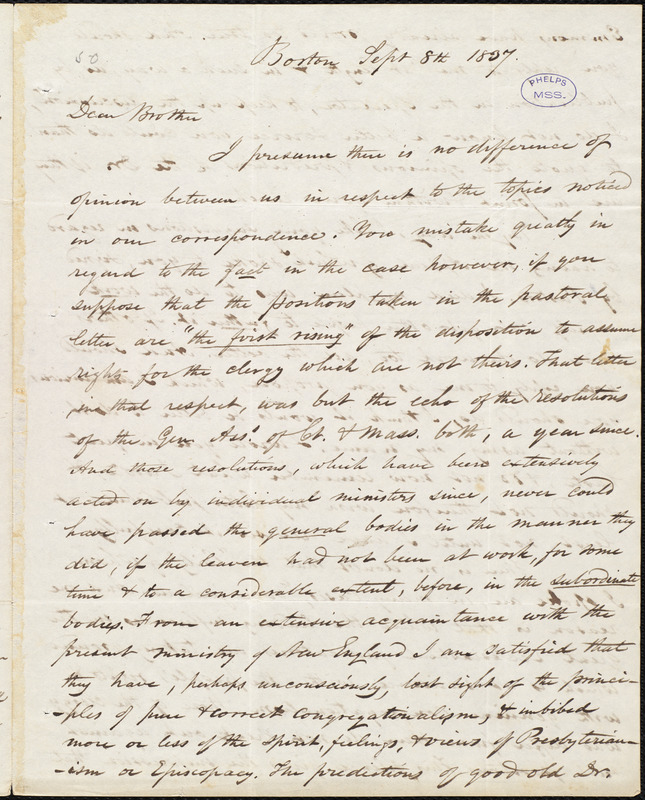 50
Boston Sept 8th 1837.
PHELPS
MSS.
Dear Brother
I presume there is no difference of
opinion between us in respect to the topics noticed
in our correspondence. You mistake greatly in
regard to the fact in the case however, if you
suppose that the positions taken in the pastoral
letter are "the first rising" of the disposition to assume
rights for the clergy which are not theirs. That letter
in that respect, was but the echo of the resolutions
of the Gen. Ass. of Ct. & Mass. both, a year since.
And those resolutions, which have been extensively
acted on by individual ministers since, never could
have passed the general bodies in the manner they
did, if the leaven had not been at work, for some
time & to a considerable extent, before, in the subordinate
bodies. From an extensive acquaintance with the
present ministry of New England I am satisfied that
they have, perhaps unconsciously, lost sight of the princi-
-ples of pure & correct Congregationalism, & imbibed
more or less of the spirit, feelings, & views of Presbyterian-
-ism or Episcopacy. The predictions of good old Dr.